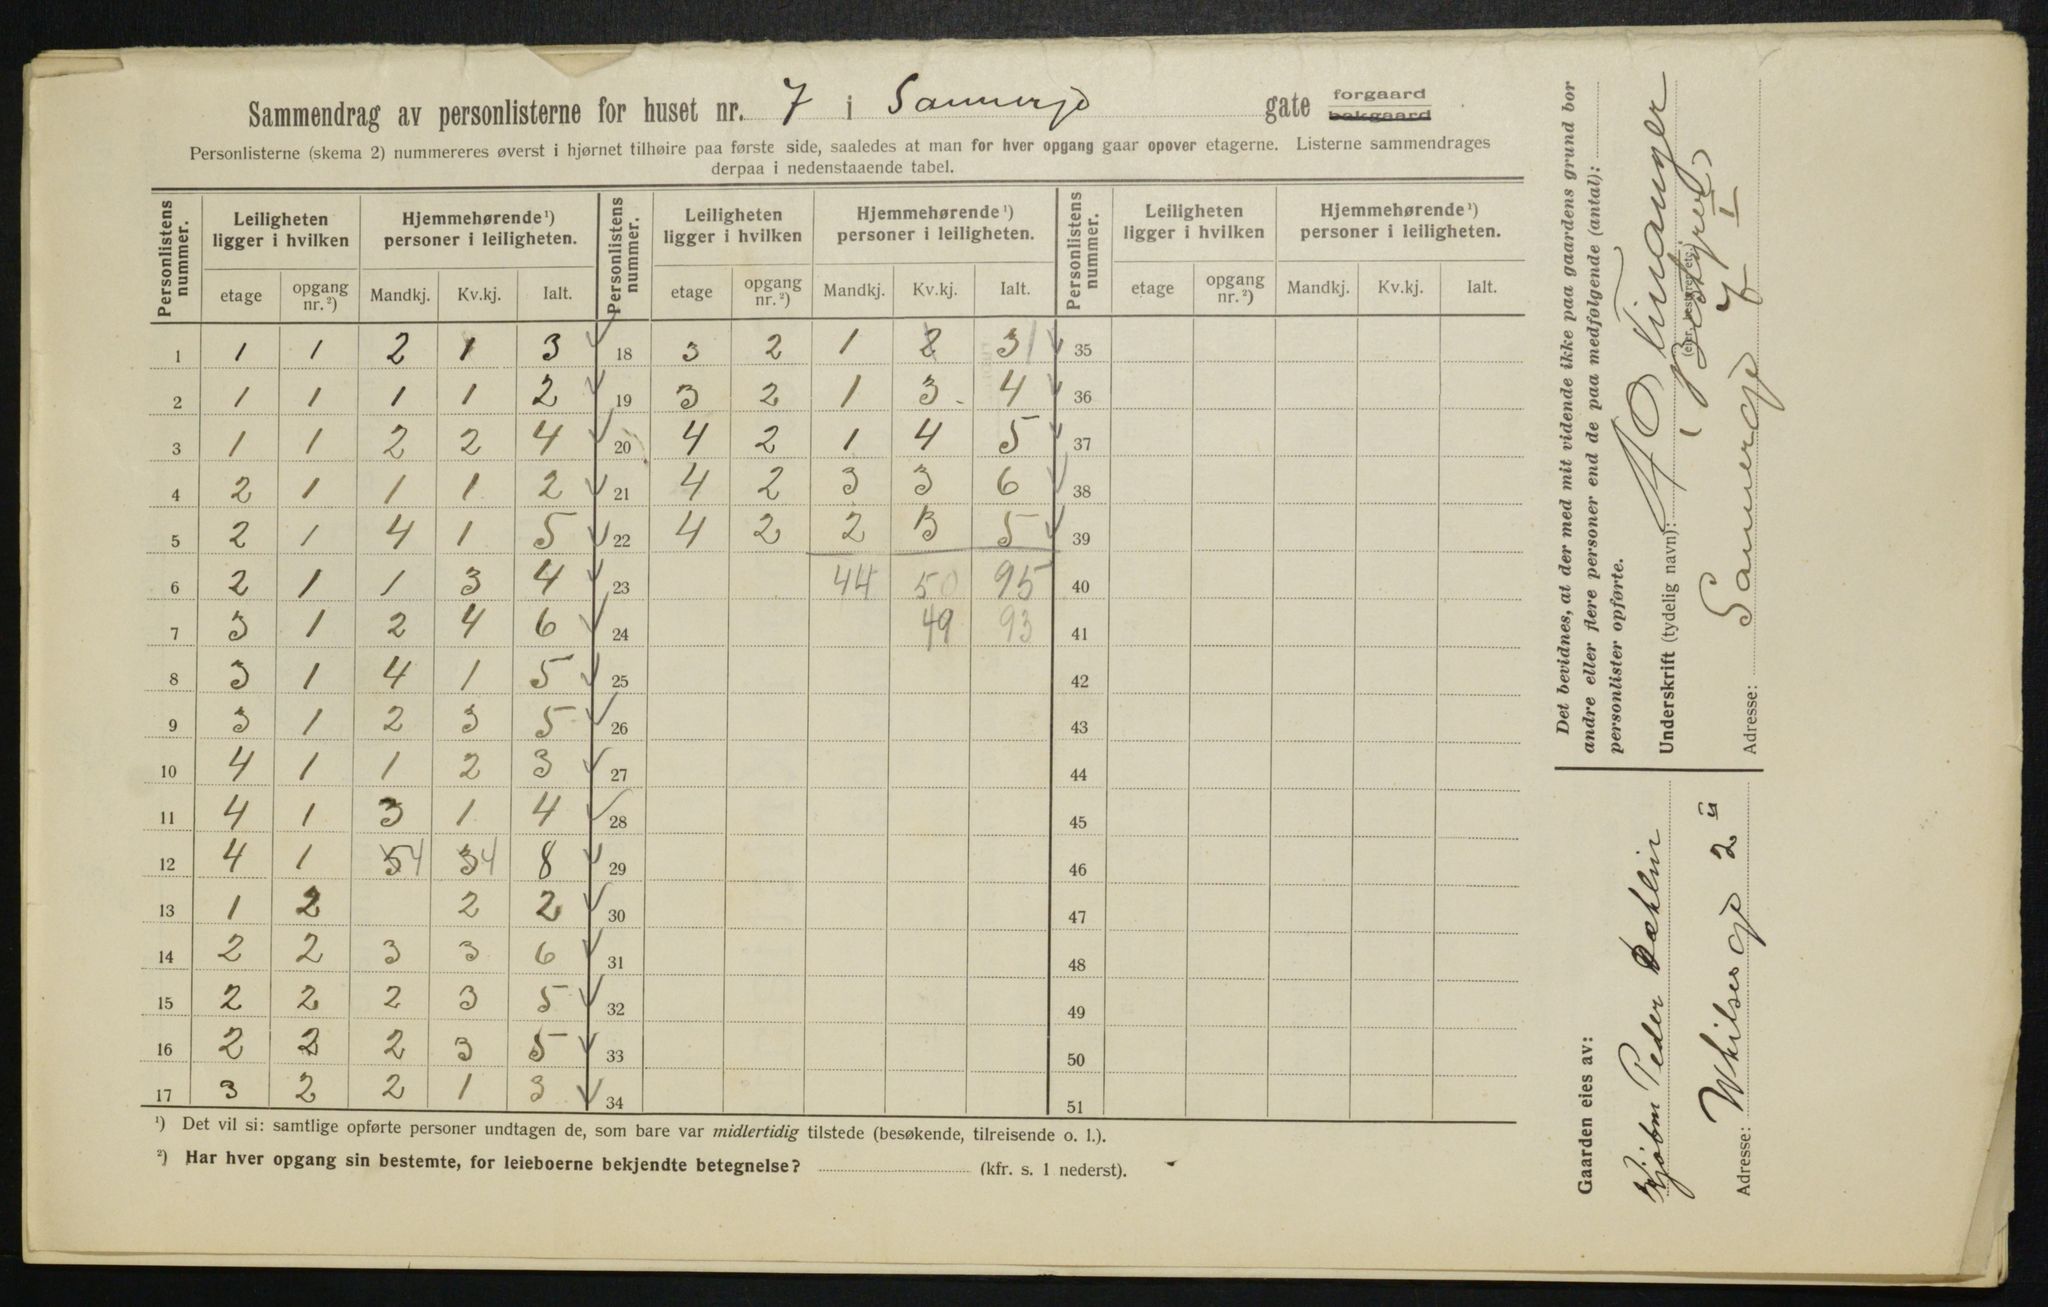 Sammendrag av personlisterne for huset nr. 7 i Sannergt gate forgaard bakgaard
Personlisterne (skema 2) nummereres øverst i hjørnet tilhøire paa første side, saaledes at man for hver opgang gaar opover etagerne. Listerne sammendrages
derpaa i nedenstaaende tabel.
Personlistens nummer. Leiligheten ligger i hvilken Hjemmehørende¹) personer i leiligheten. Personlistens nummer. Leiligheten ligger i hvilken Hjemmehørende¹) personer i leiligheten. Personlistens nummer. Leiligheten ligger i hvilken Hjemmehørende¹) personer i leiligheten.
etage opgang nr.²) Mandkj. Kv.kj. Ialt. etage opgang nr.²) Mandkj. Kv.kj. Ialt. etage opgang nr.²) Mandkj. Kv.kj. Ialt.
1 1 1 2 1 3 18 3 2 1 2 3 35
2 1 1 1 1 2 19 3 2 1 3 4 36
3 1 1 2 2 4 20 4 2 1 4 5 37
4 2 1 1 1 2 21 4 2 3 3 6 38
5 2 1 4 1 5 22 4 2 2 3 5 39
6 2 1 1 3 4 23 44 50 95 40
7 3 1 2 4 6 24 49 93 41
8 3 1 4 1 5 25 42
9 3 1 2 3 5 26 43
10 4 1 1 2 3 27 44
11 4 1 3 1 4 28 45
12 4 1 5 4 3 4 8 29 46
13 1 2 2 2 30 47
14 2 2 3 3 6 31 48
15 2 2 2 3 5 32 49
16 2 2 2 3 5 33 50
17 3 2 2 1 3 34 51
¹) Det vil si: samtlige opførte personer undtagen de, som bare var midlertidig tilstede (besøkende, tilreisende o. l.).
²) Har hver opgang sin bestemte, for leieboerne bekjendte betegnelse? (kfr. s. 1 nederst).
Det bevidnes, at der med mit vidende ikke paa gaardens grund bor
andre eller flere personer end de paa medfølgende (antal):
personlister opførte.
Underskrift (tydelig navn):
(eier, bestyrer etc.)
(Bestyrer)
Adresse: Sannergt 7 I
Gaarden eies av:
Peder
Adresse: 2